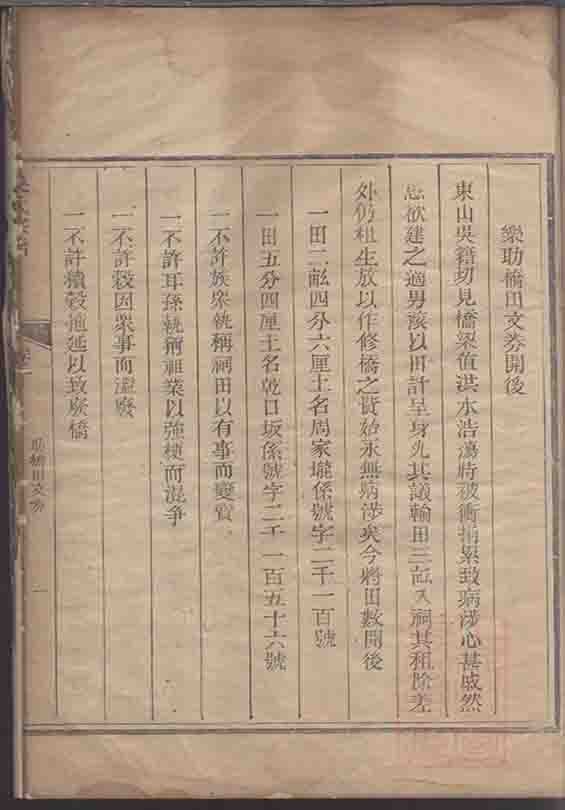 樂助橋田文券開後
東山吳籍切見橋梁值洪水浩蕩時被衝損累致病涉心甚戚然
思欲建之適男該以田計呈身允其議輸田三畝入祠其租除差
外仍租生放以作修橋之資始永無病涉矣今將田數開後
一田二畝四分六厘土名周家壠係號字二千一百號
一田五分四厘土名乾口坂係號字二千一百五十六號
一不許族眾執稱祠田以有事而變賣
一不許耳孫執稱祖業以強梗而混爭
一不許穀因眾事而濫廢
一不許積穀拖延以致廢橋
助橋田文券
一